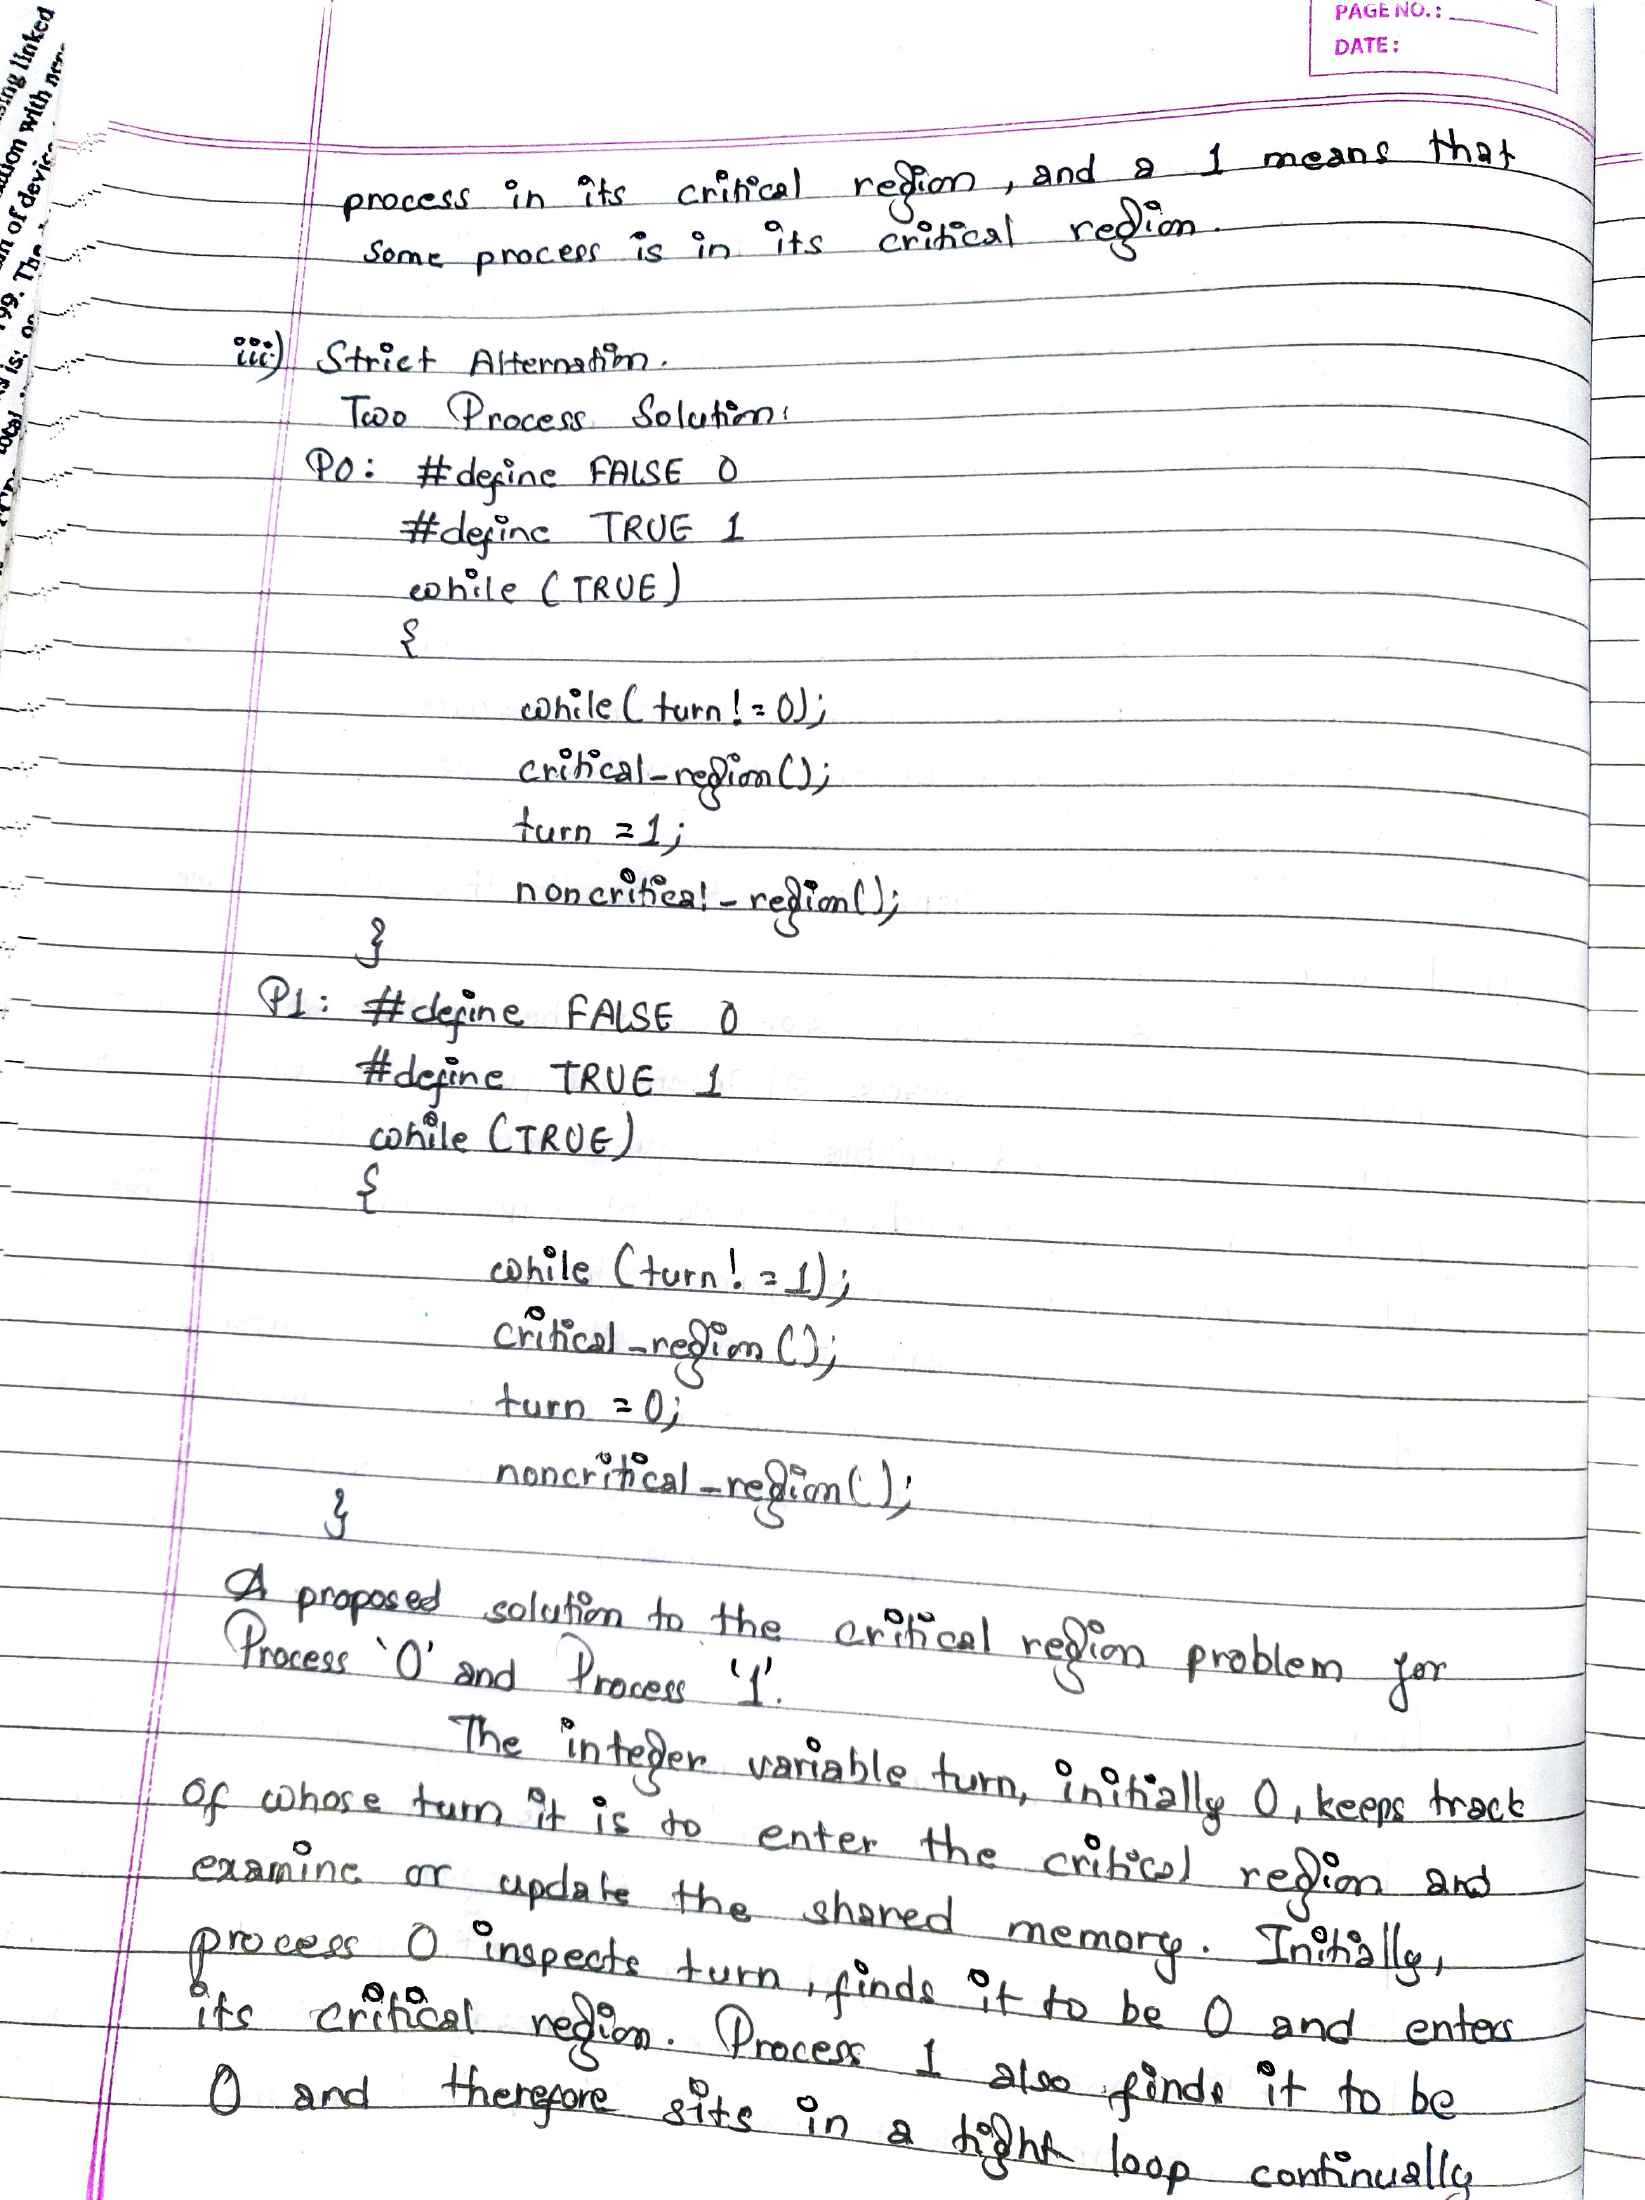 PAGE NO.:
DATE:
process in its critical region, and a 1 means that
some process is in its critical region.
iii) Strict Alternation.
Two Process Solution:
P0: #define FALSE 0
#define TRUE 1
while (TRUE)
{
while (turn != 0);
critical_region();
turn = 1;
noncritical_region();
}
P1: #define FALSE 0
#define TRUE 1
while (TRUE)
{
while (turn != 1);
critical_region();
turn = 0;
noncritical_region();
}
A proposed solution to the critical region problem for
Process '0' and Process '1'.
The integer variable turn, initially 0, keeps track
of whose turn it is to enter the critical region and
examine or update the shared memory. Initially,
process 0 inspects turn, finds it to be 0 and enters
its critical region. Process 1 also finds it to be
0 and therefore sits in a tight loop continually
sing linked
ation with
n of device
99. The
is: